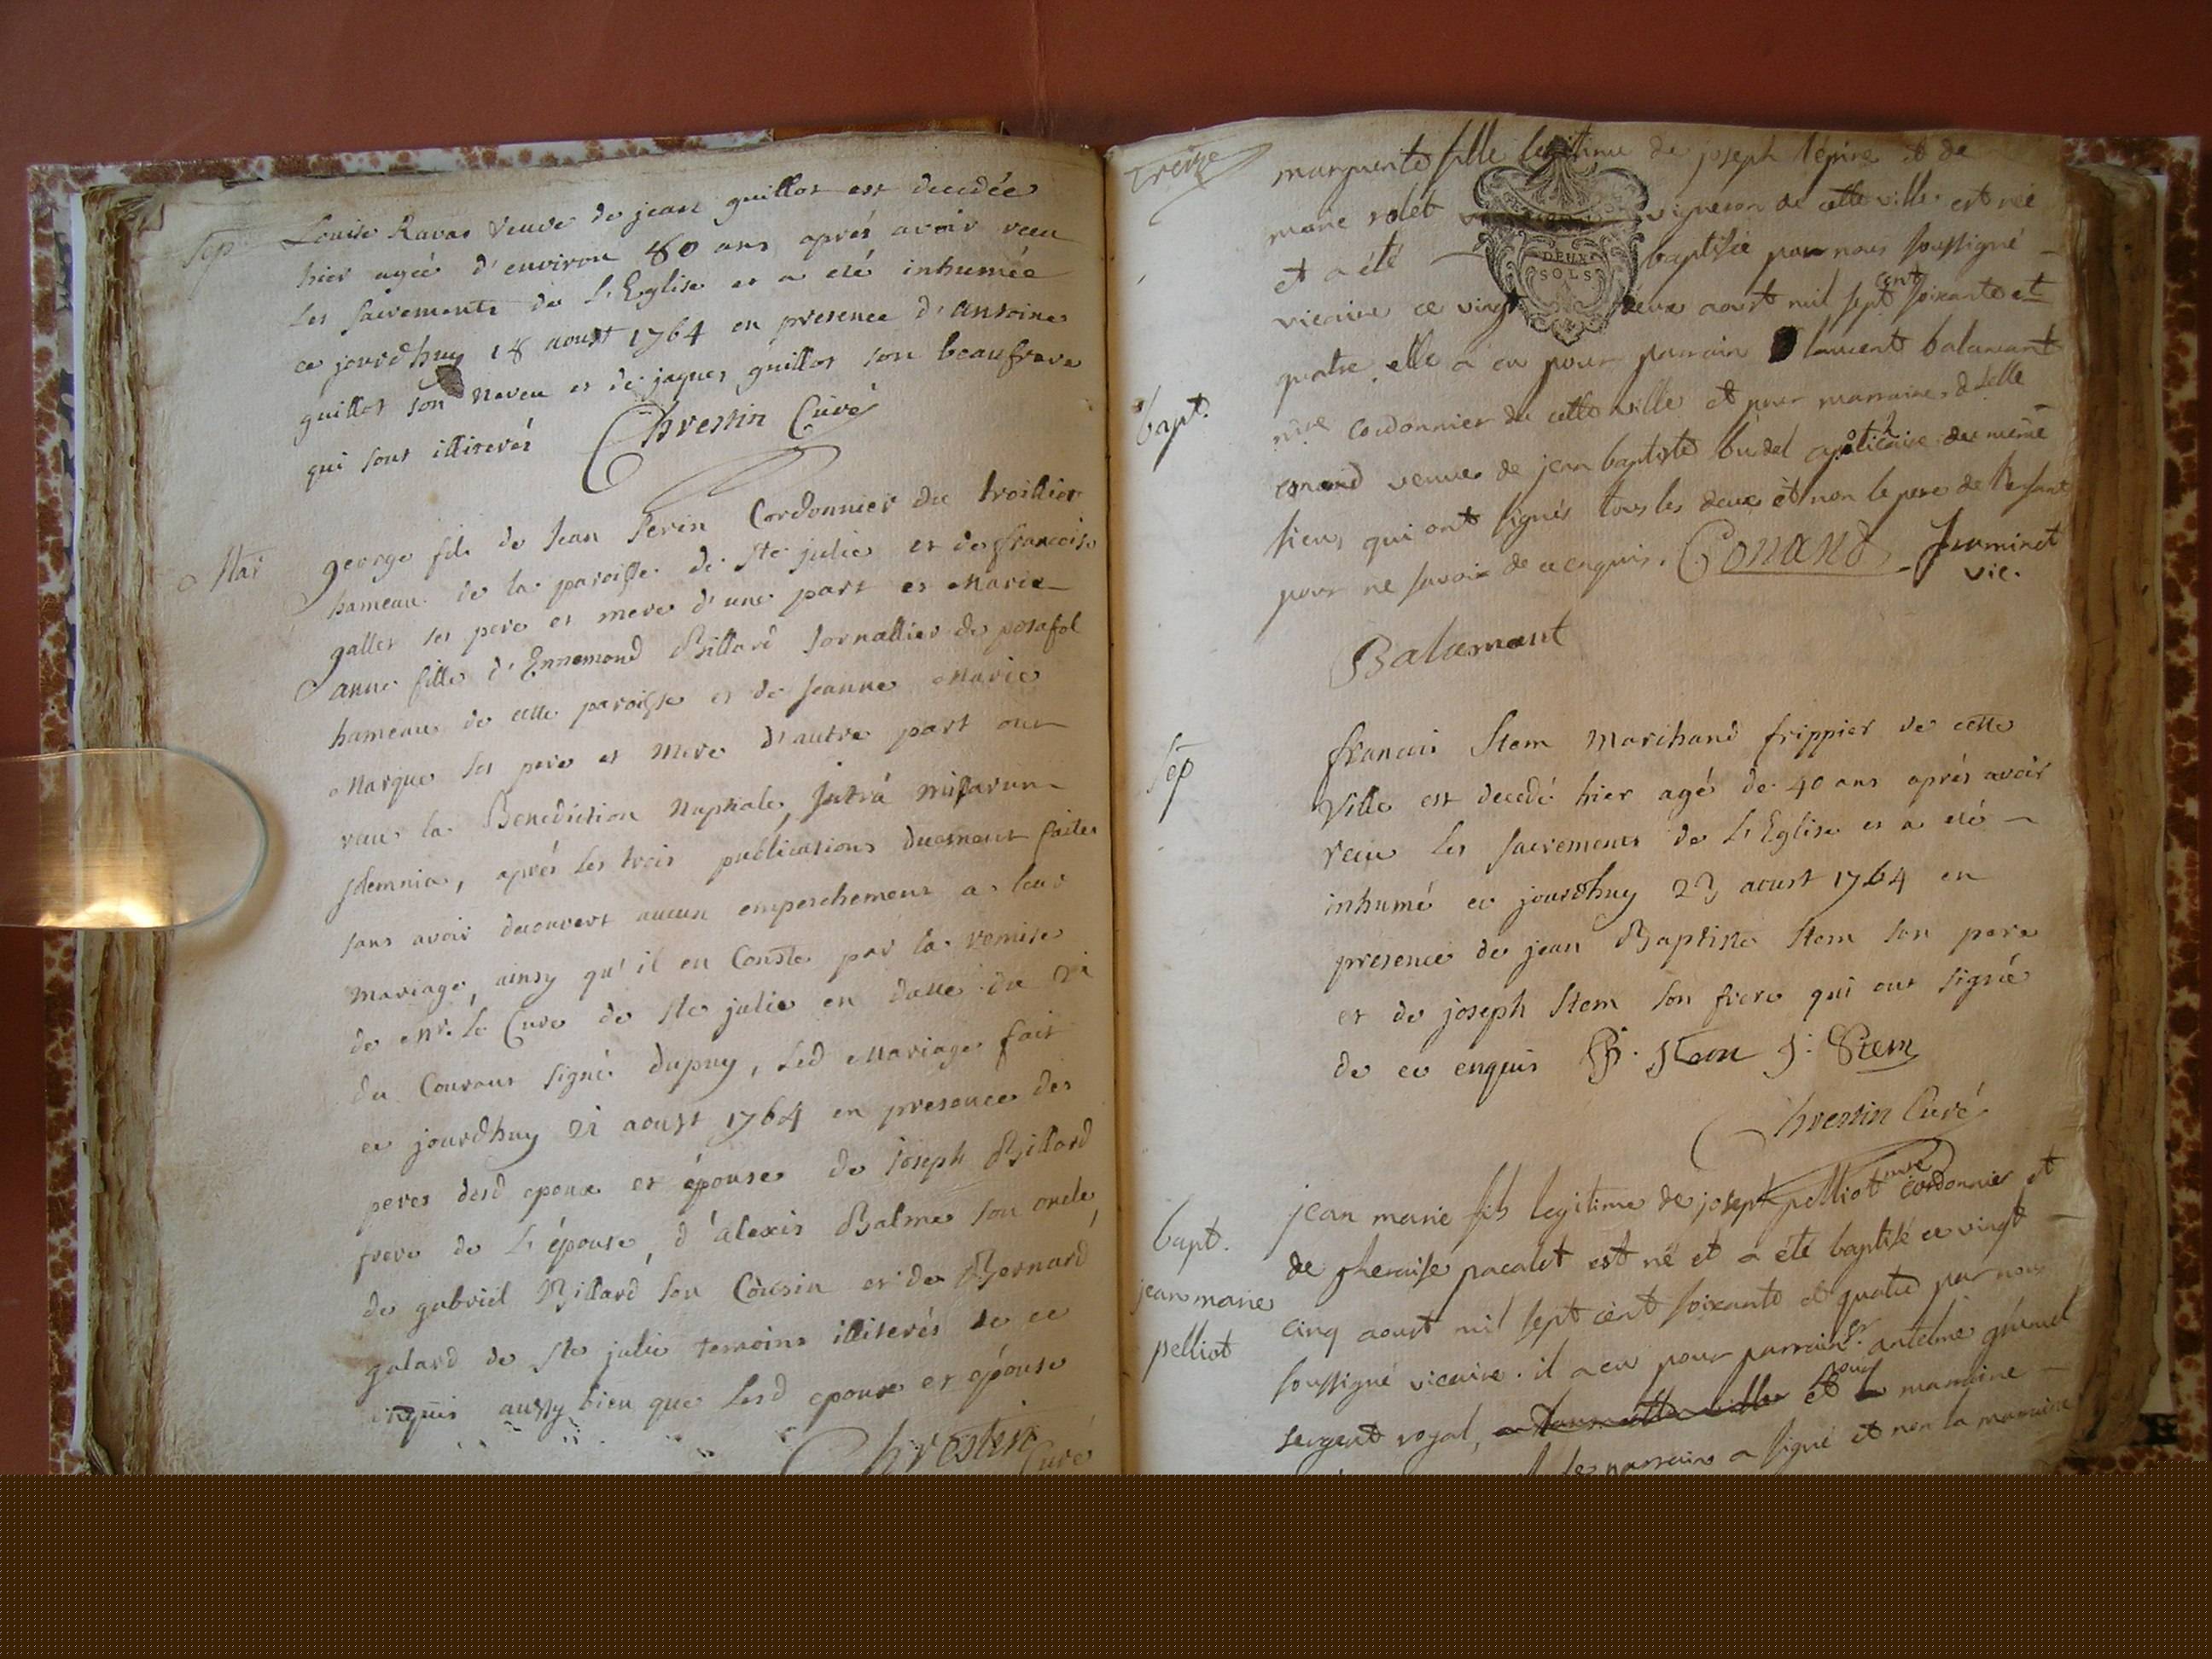 Sep
Louise Ravas veuve de jean guillot est decedée
hier agée d'environ 80 ans aprés avoir reçu
les sacrements de L'Eglise et a eté inhumée
ce jourd'huy 18 aoust 1764 en presence d'antoine
guillot son neveu et de jaques guillot son beaufrere
qui sont illiterés Chrestin Curé
Mar
george fils de Jean Perin Cordonnier du troillier
hameau de la paroisse de Ste julie et de francoise
gallet ses pere et mere d'une part et Marie
anne fille d'Ennemond Billard Jornallier de posafol
hameau de cette paroisse et de Jeanne Marie
Marque ses pere et mere d'autre part ont
recu la Benediction Nuptiale, Intrà missarum
solemnia, aprés les trois publications duement faites
sans avoir decouvert aucun empeschement a leur
Mariage, ainsy qu'il en Conste par la remise
de Mr. le Curé de Ste julie en datte du 21
du Courant signé dupuy, led Mariage fait
ce jourdhuy 21 aoust 1764 en presence des
peres desd epoux et épouse de Joseph Billard
frere de L'épouse, d'alexis Balme son oncle,
de gabriel Billard son Cousin et de Bernard
galard de Ste julie temoins illiterés de ce
enquis aussy bien que lesd epoux et epouse
Chrestin Curé
treize
bapt.
marguerite fille legitime de joseph lépine et de
marie rolet vigneron de cette ville est née
et a été baptisée par nous soussigné
DEUX
SOLS
vicaire ce vingt deux aoust mil sept cent soixante et
quatre. elle a eu pour parrain laurent balamant
me cordonnier de cette ville et pour marraine delle
conand veuve de jean baptiste budel apoticaire du même
lieu, qui ont signés tous les deux et non le pere de l'enfant
pour ne savoir de ce enquis. Conand Juminet
vic.
Balamant
Sep
francois Stem Marchand frippier de cette
Ville est decedé hier agé de 40 ans aprés avoir
reçu les sacrements de L'Eglise et a eté
inhumé ce jourdhuy 23 aoust 1764 en
presence de jean Baptiste Stem son pere
et de joseph Stem son frere qui ont signé
de ce enquis Stem J: Stem
Chrestin Curé
bapt.
jean marie
pelliot
jean marie fils legitime de joseph pelliot me cordonnier et
de theraise pacalet est né et a été baptisé ce vingt
cinq aoust mil sept cent soixante et quatre par nous
soussigné vicaire. il a eu pour parrain Sr. antelme
sergent royal, et pour marraine
le parrain a signé et non la marraine